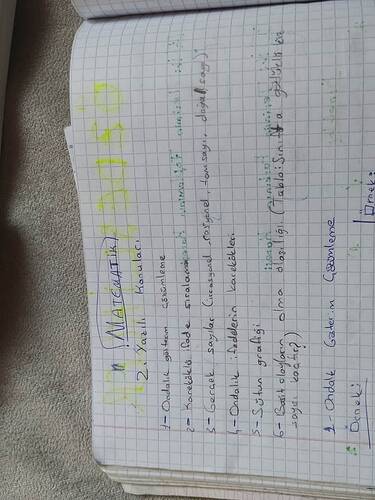 MATEMATİK
2. Yazılı Konuları
1- Ondalık gösterim çözümleme
2- Kareköklü ifade sıralama
3- Gerçek sayılar (irrasyonel, rasyonel, tamsayı, doğal sayı)
4- Ondalık ifadelerin karekökleri
5- Sütun grafiği
6- Basit olayların olma olasılığı (Tablo: Sınıfa gözlüklü
sayısı kaçtır?)
1- Ondalık Gösterim Çözümleme
Örnek:
Örnek: